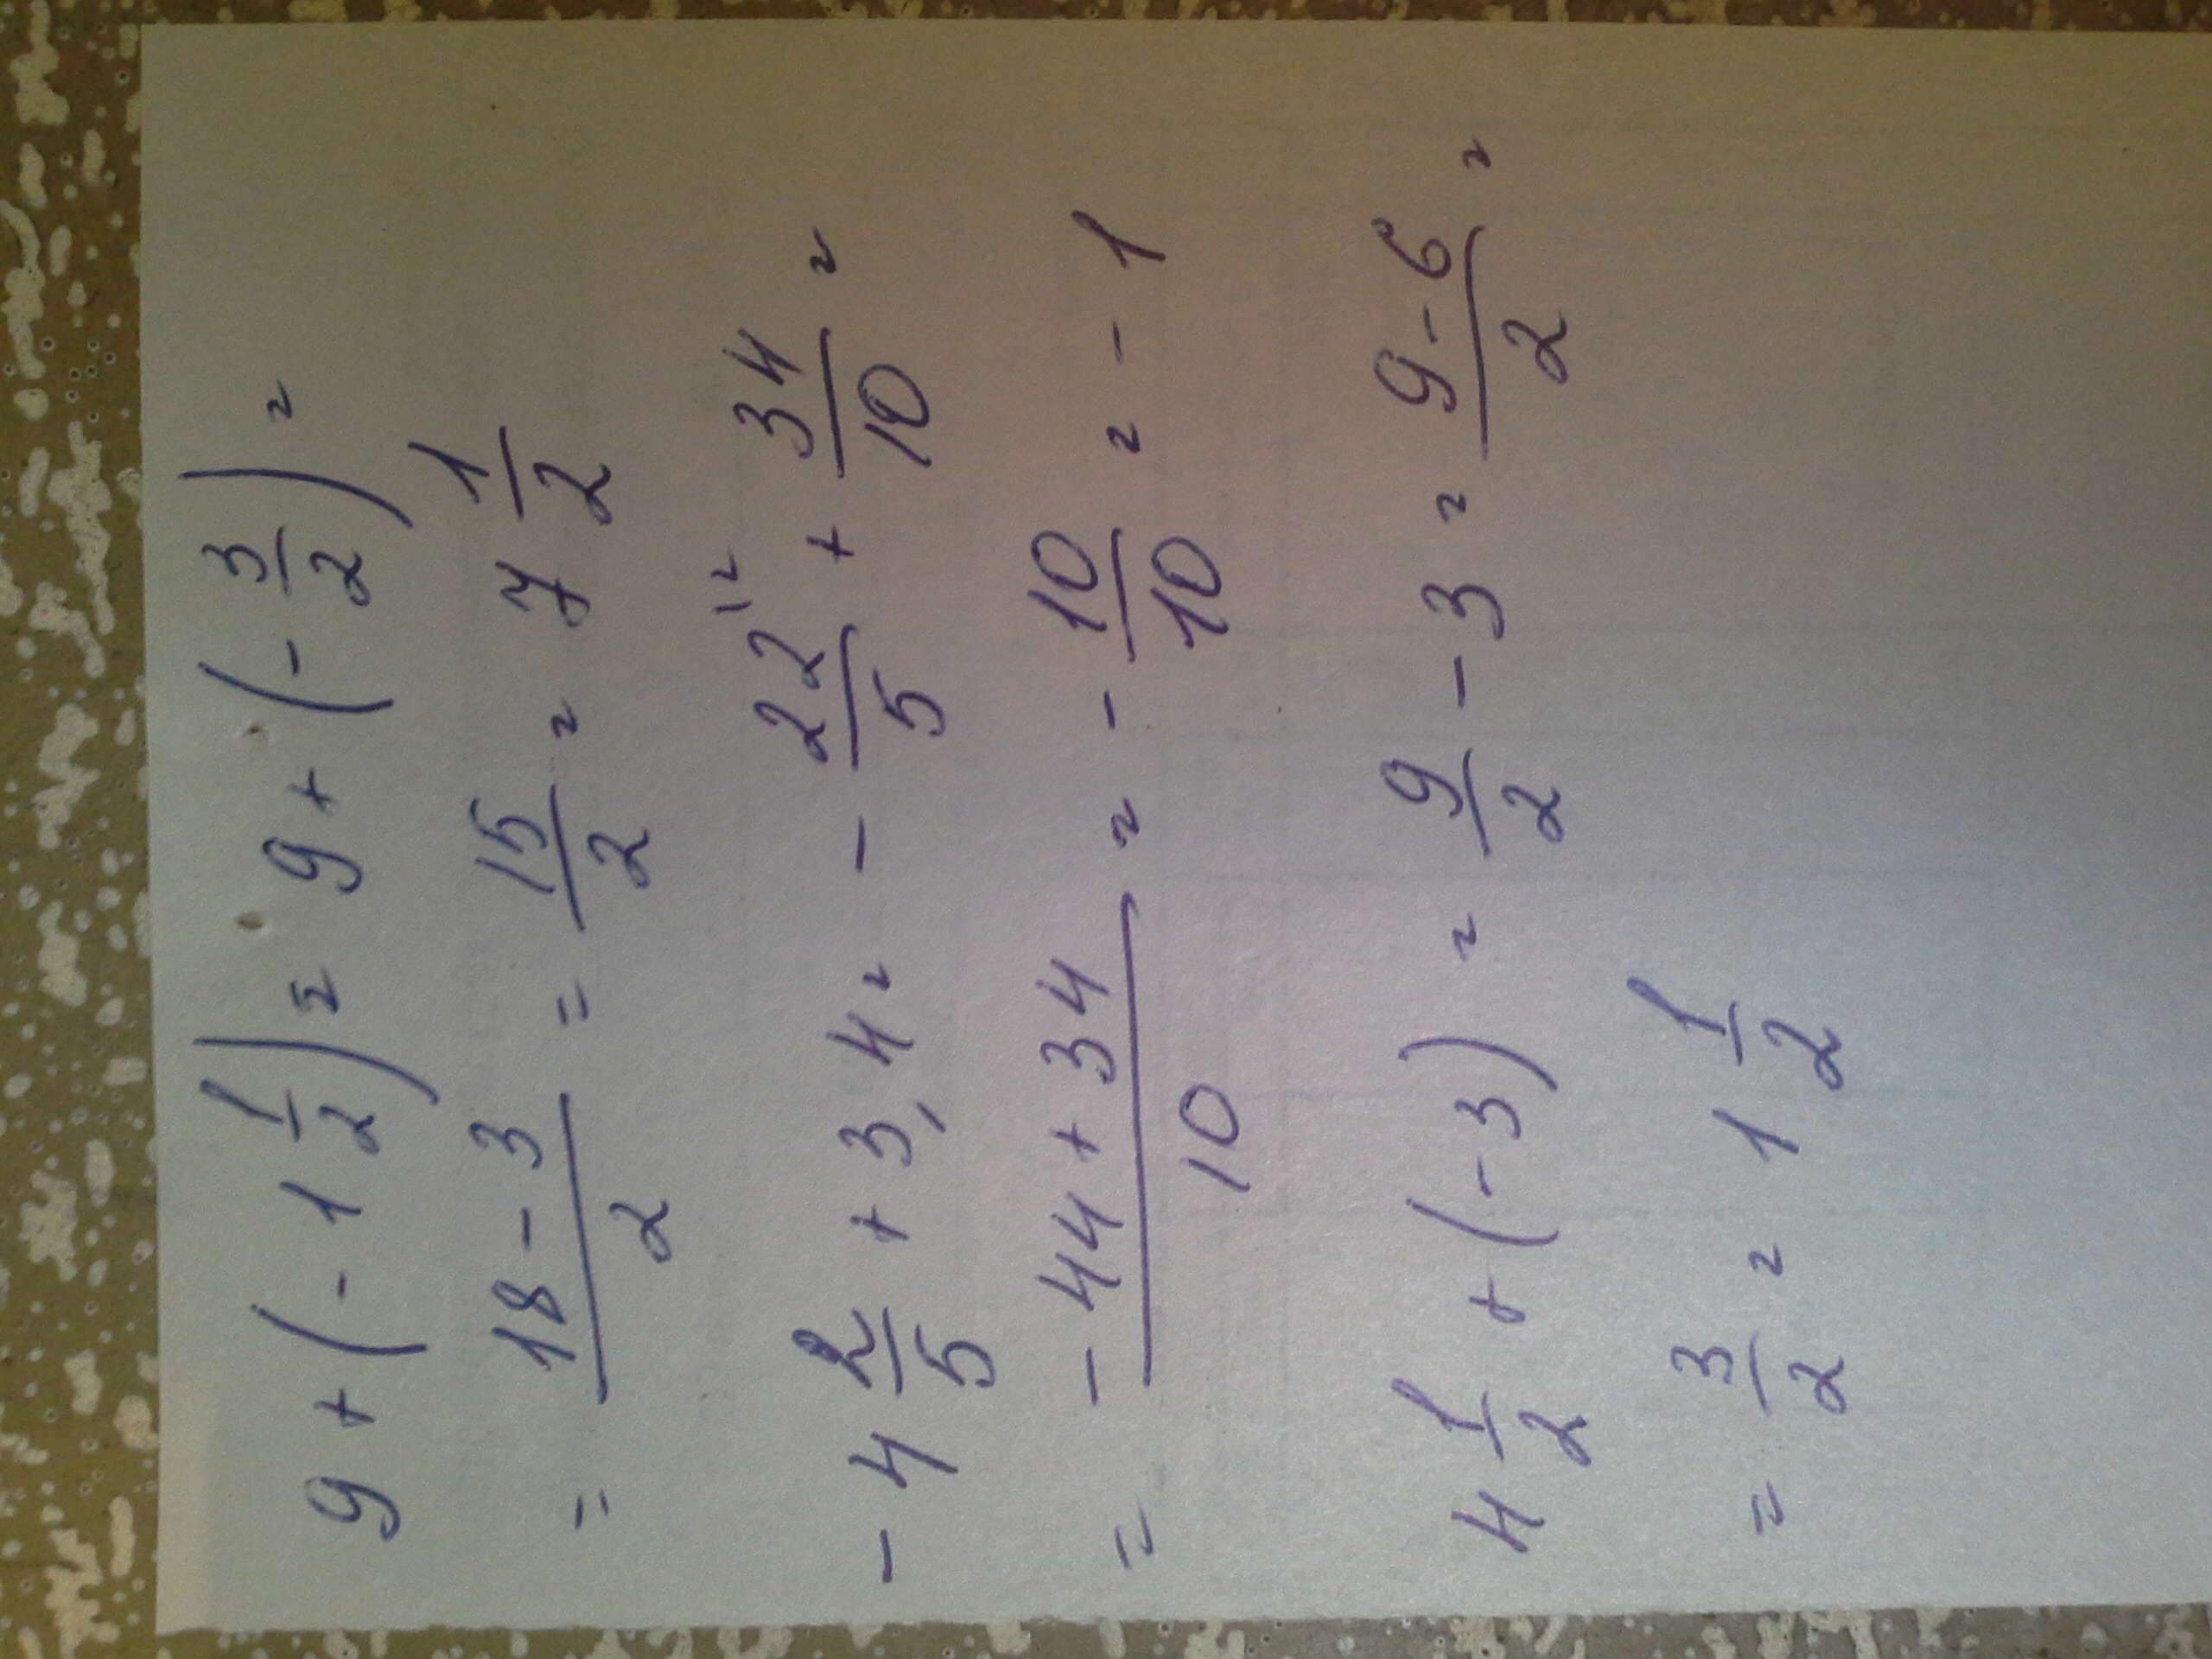 9 + (- 1 1/2) = 9 + (- 3/2) =
= 18 - 3/2 = 15/2 = 7 1/2
- 4 2/5 + 3,4 = - 22/5 \2 + 34/10 =
= - 44 + 34/10 = - 10/10 = - 1
4 1/2 + (- 3) = 9/2 - 3 = 9 - 6/2 =
= 3/2 = 1 1/2